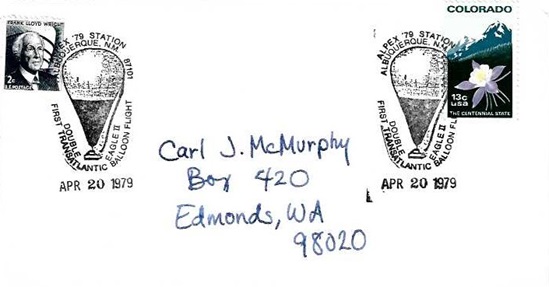 FRANK LLOYD WRIGHT
2¢
U.S. POSTAGE
ALPEX '79 STATION
ALBUQUERQUE, N.M. 87101
DOUBLE EAGLE II
FIRST TRANSATLANTIC BALLOON FLIGHT
APR 20 1979
COLORADO
13c
usa
THE CENTENNIAL STATE
ALPEX '79 STATION
ALBUQUERQUE, N.M.
DOUBLE EAGLE II
FIRST TRANSATLANTIC BALLOON FL
APR 20 1979
Carl J. McMurphy
Box 420
Edmonds, WA
98020